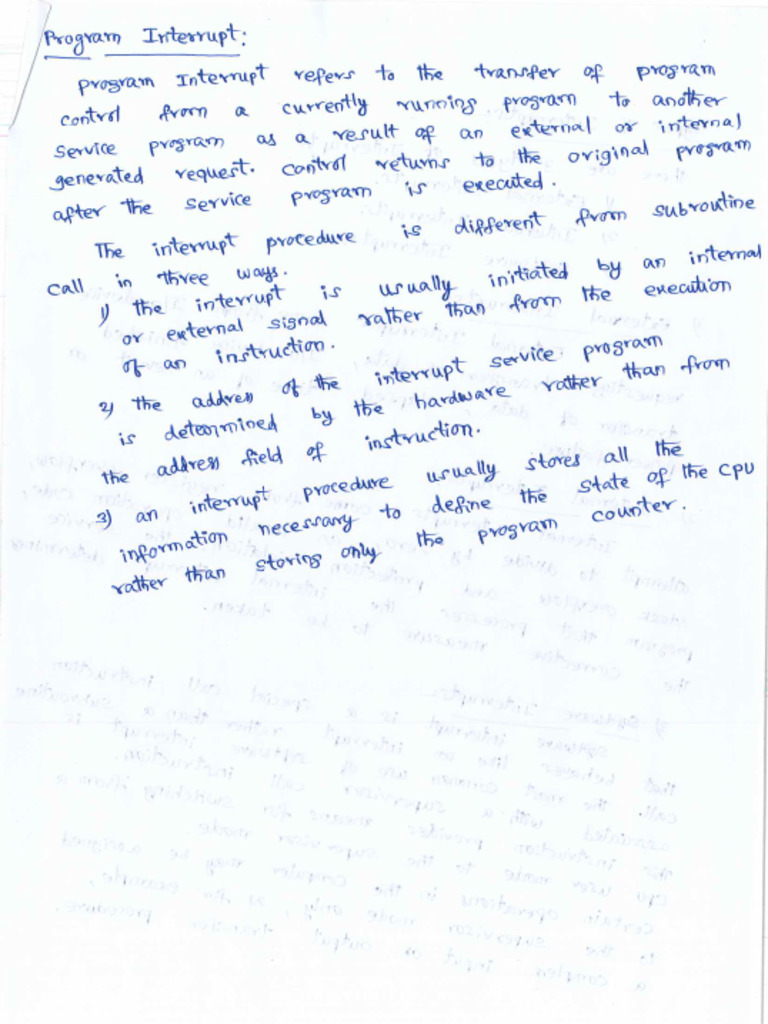 Program Interrupt:
program Interrupt refers to the transfer of program
control from a currently running program to another
service program as a result of an external or internal
generated request. control returns to the original program
after the service program is executed.
The interrupt procedure is different from subroutine
call in three ways.
1) the interrupt is usually initiated by an internal
or external signal rather than from the execution
of an instruction.
2) the address of the interrupt service program
is determined by the hardware rather than from
the address field of instruction.
3) an interrupt procedure usually stores all the
information necessary to define the state of the CPU
rather than storing only the program counter.